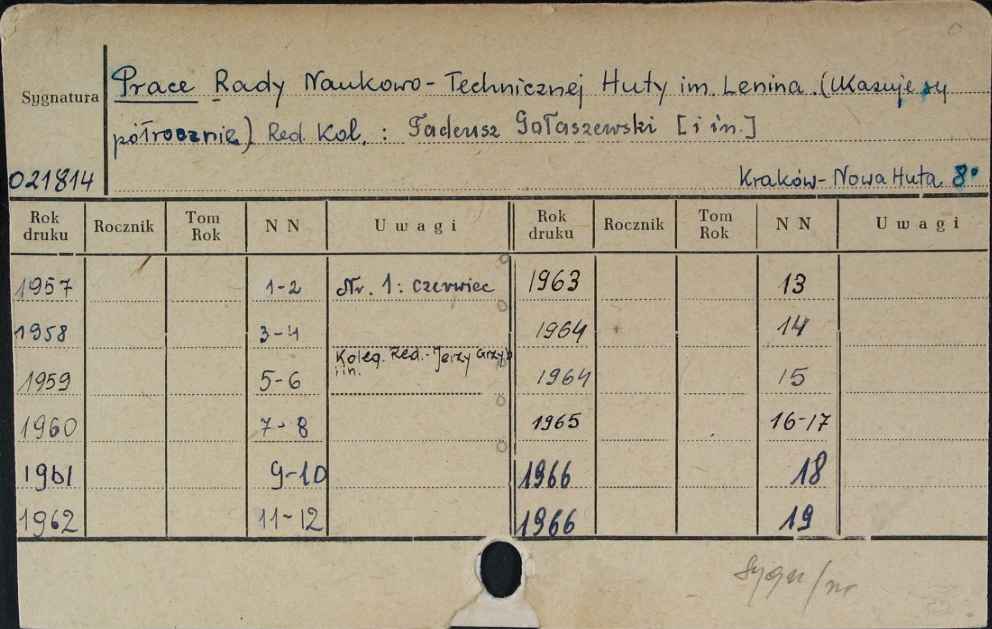 Prace Rady Naukowo-Technicznej Huty im. Lenina. (Ukazuje się
Sygnatura
półrocznie) Red. Kol. : Tadeusz Gołaszewski [i in.]
021814
Kraków-Nowa Huta 8°
Rok druku Rocznik Tom Rok NN Uwagi Rok druku Rocznik Tom Rok NN Uwagi
1957 1-2 Nr. 1: czerwiec 1963 13
1958 3-4 1964 14
Koleg. Red.- Jerzy Grzyb
i in.
1959 5-6 1964 15
1960 7-8 1965 16-17
1961 9-10 1966 18
1962 11-12 1966 19